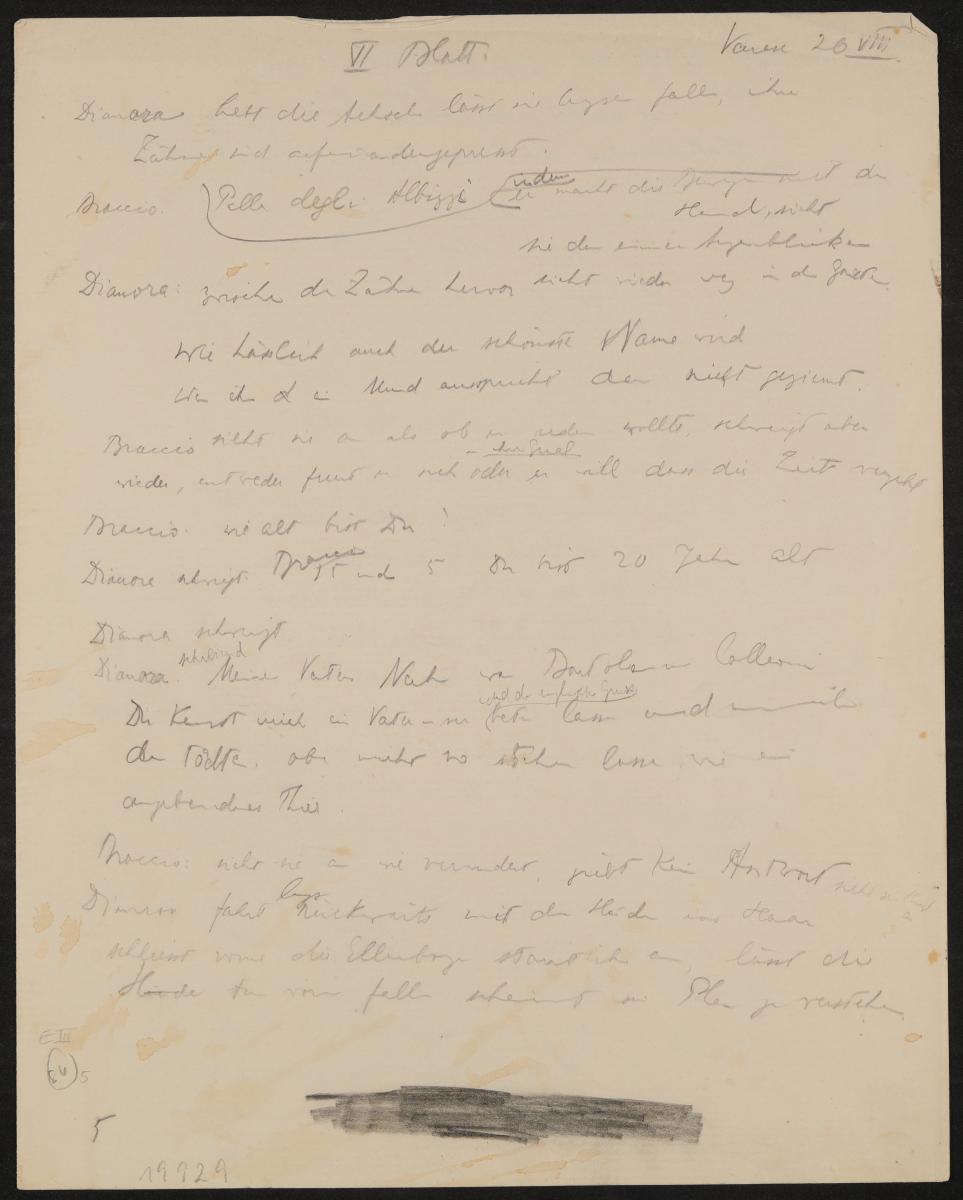 VI Blatt.
Varese 20 VIII.
Dianora hebt die lässt sie fallen, ihre
Zähne sind aufeinandergepresst.
Braccio. Palla degli Albizzi indem er macht die mit der
Hand, sieht
sie den einen Augenblick an
Dianora: zwischen den Zähnen hervor sieht wieder weg in den Garten.
Wie hässlich auch der schönste Name wird
wenn ihn ein Mund ausspricht dem nicht geziemt.
Braccio sieht sie an als ob er reden wollte, schweigt aber
wieder, entweder freut er sich oder er will dass die Zeit vergeht
Braccio. wie alt bist Du?
Dianora schweigt. Braccio 15 und 5 Du bist 20 Jahre alt
Dianora schweigt
Dianora. Meines Vaters Name war Bartolomeo Colleoni
Du kannst mich ein Vaterunser und den englischen Gruss beten lassen und mich
dann tödten. aber nicht so stehen lassen wie ein
angebundenes Thier.
Braccio: sieht sie an wie verwundert, giebt keine Antwort
Dianora fährt rückwärts mit den Händen ins Haar
schliesst vorne die Ellenbogen an, lässt die
Hände dann vorn fallen scheint den Plan zu verstehen.
E III
5
5
19929